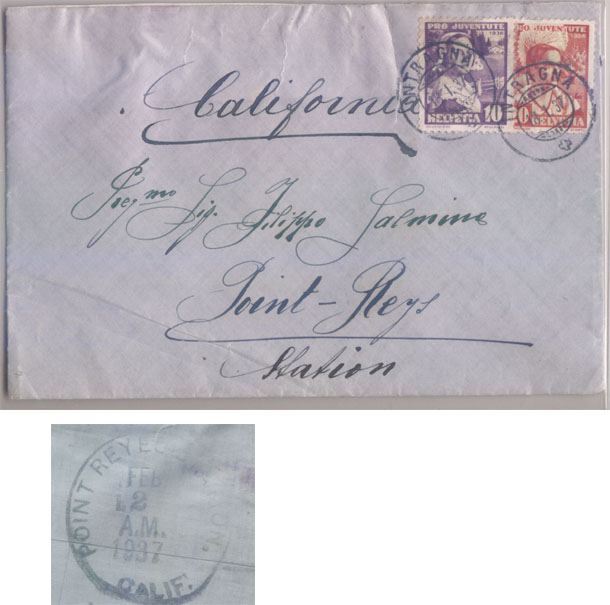 PRO JUVENTUTE
1936
HELVETIA 10
PRO JUVENTUTE
1936
HELVETIA
INTRAGNA
INTRAGNA
California
Preg.mo Sig. Filippo Salmina
Point-Reys
Station
POINT REYES
FEB
12
A.M.
1937
CALIF.